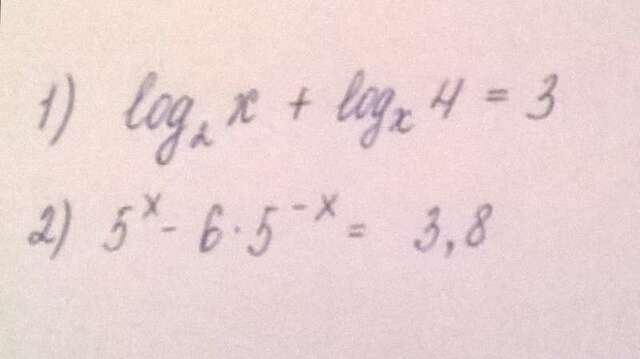 1) log₂ x + logₓ 4 = 3
2) 5ˣ - 6 · 5⁻ˣ = 3,8